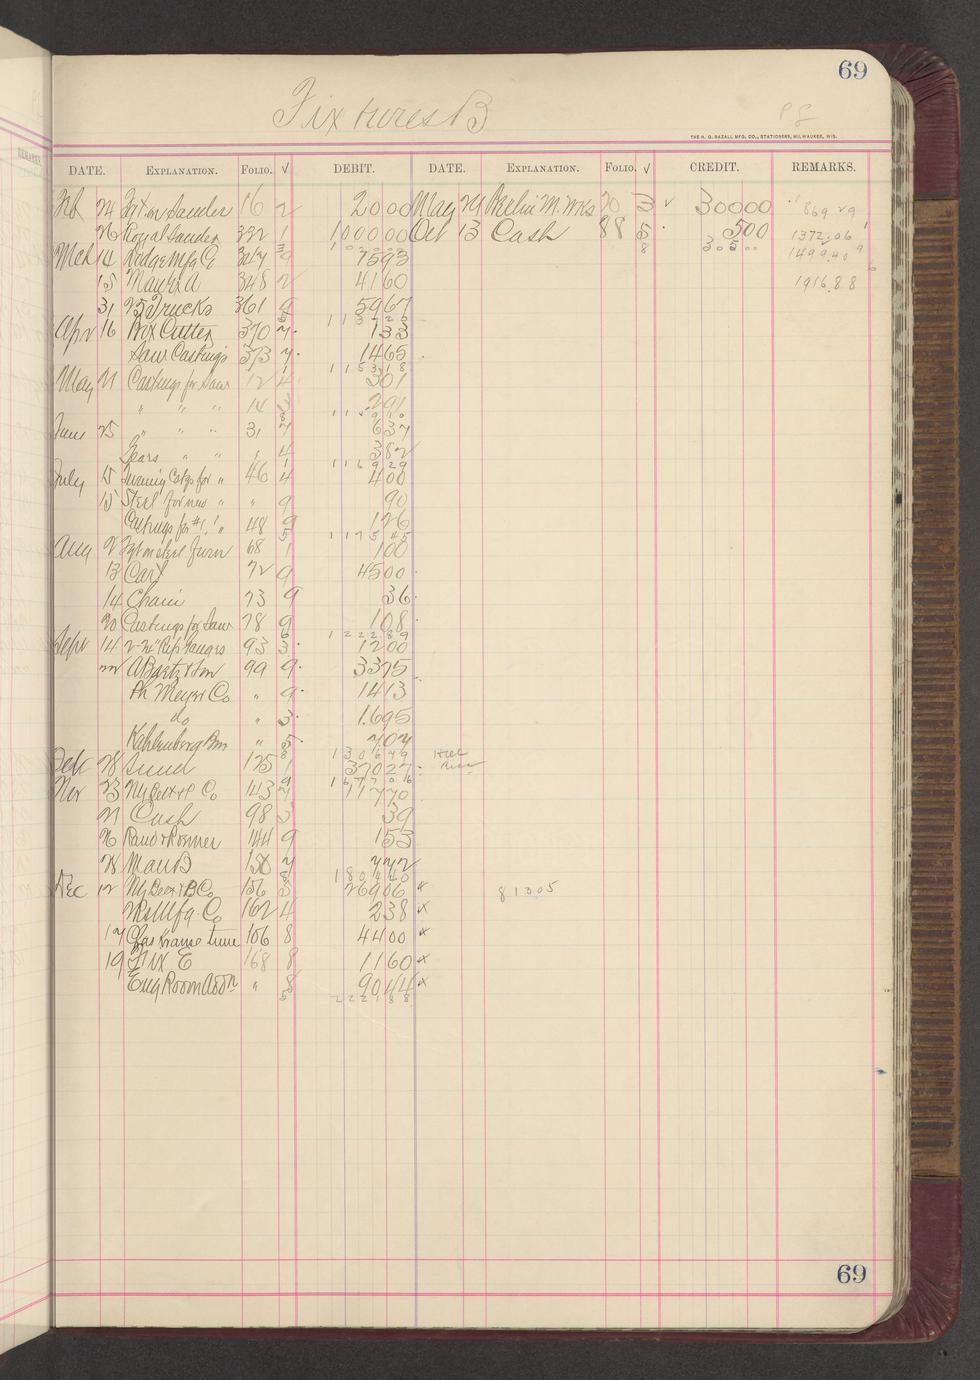 69
Fixtures B
THE H. G. RAZALL MFG. CO., STATIONERS, MILWAUKEE, WIS.
DATE. EXPLANATION. FOLIO. √ DEBIT. DATE. EXPLANATION. FOLIO. √ CREDIT. REMARKS.
Feb 24 Frt on Sander 16 2 2000 May 29 Berlin M. Wks 20 3 √ 30000 869 29
26 Royal Sander 332 1 100000 Oct 13 Cash 88 5 500 1372.06
Mch 14 Dodge Mfg Co 347 9 7593 1499.40
15 348 2 4160 1916.88
31 25 Trucks 361 9 5967
Apr 16 Box Cutter 370 7 133
Saw Castings 373 7 1465
May 21 Castings for Saw 12 4 301
" " " 14 3 291
June 25 " " " 31 7 637
Gears " " " 4 382
July 15 for " 46 4 400
15 Steel for new " " 9 90
Castings for #1 " 48 9 126
Aug 2 Frt on steel 68 1 100
13 Cart 72 9 4500
14 Chain 73 9 36
20 Castings for Saw 78 9 108
Sept 14 93 3 1200
22 A Bartz & Son 99 9 3375
Ph Meyer & Co " 9 1413
do " 3 1695
Kahlenberg Bros " 5 704
Oct 28 Sund 125 1 37027
Nov 23 Co 143 7 11770
21 Cash 98 3 39
26 Rand & Roemer 144 9 153
28 Man B 150 7 772
Dec 12 Co 156 3 26906 x 81305
Mfg. Co 162 4 238 x
17 Chas Krause time 106 8 4400 x
19 Fix E 168 8 1160 x
Eng Room Addn " 8 9044 x
222188
69